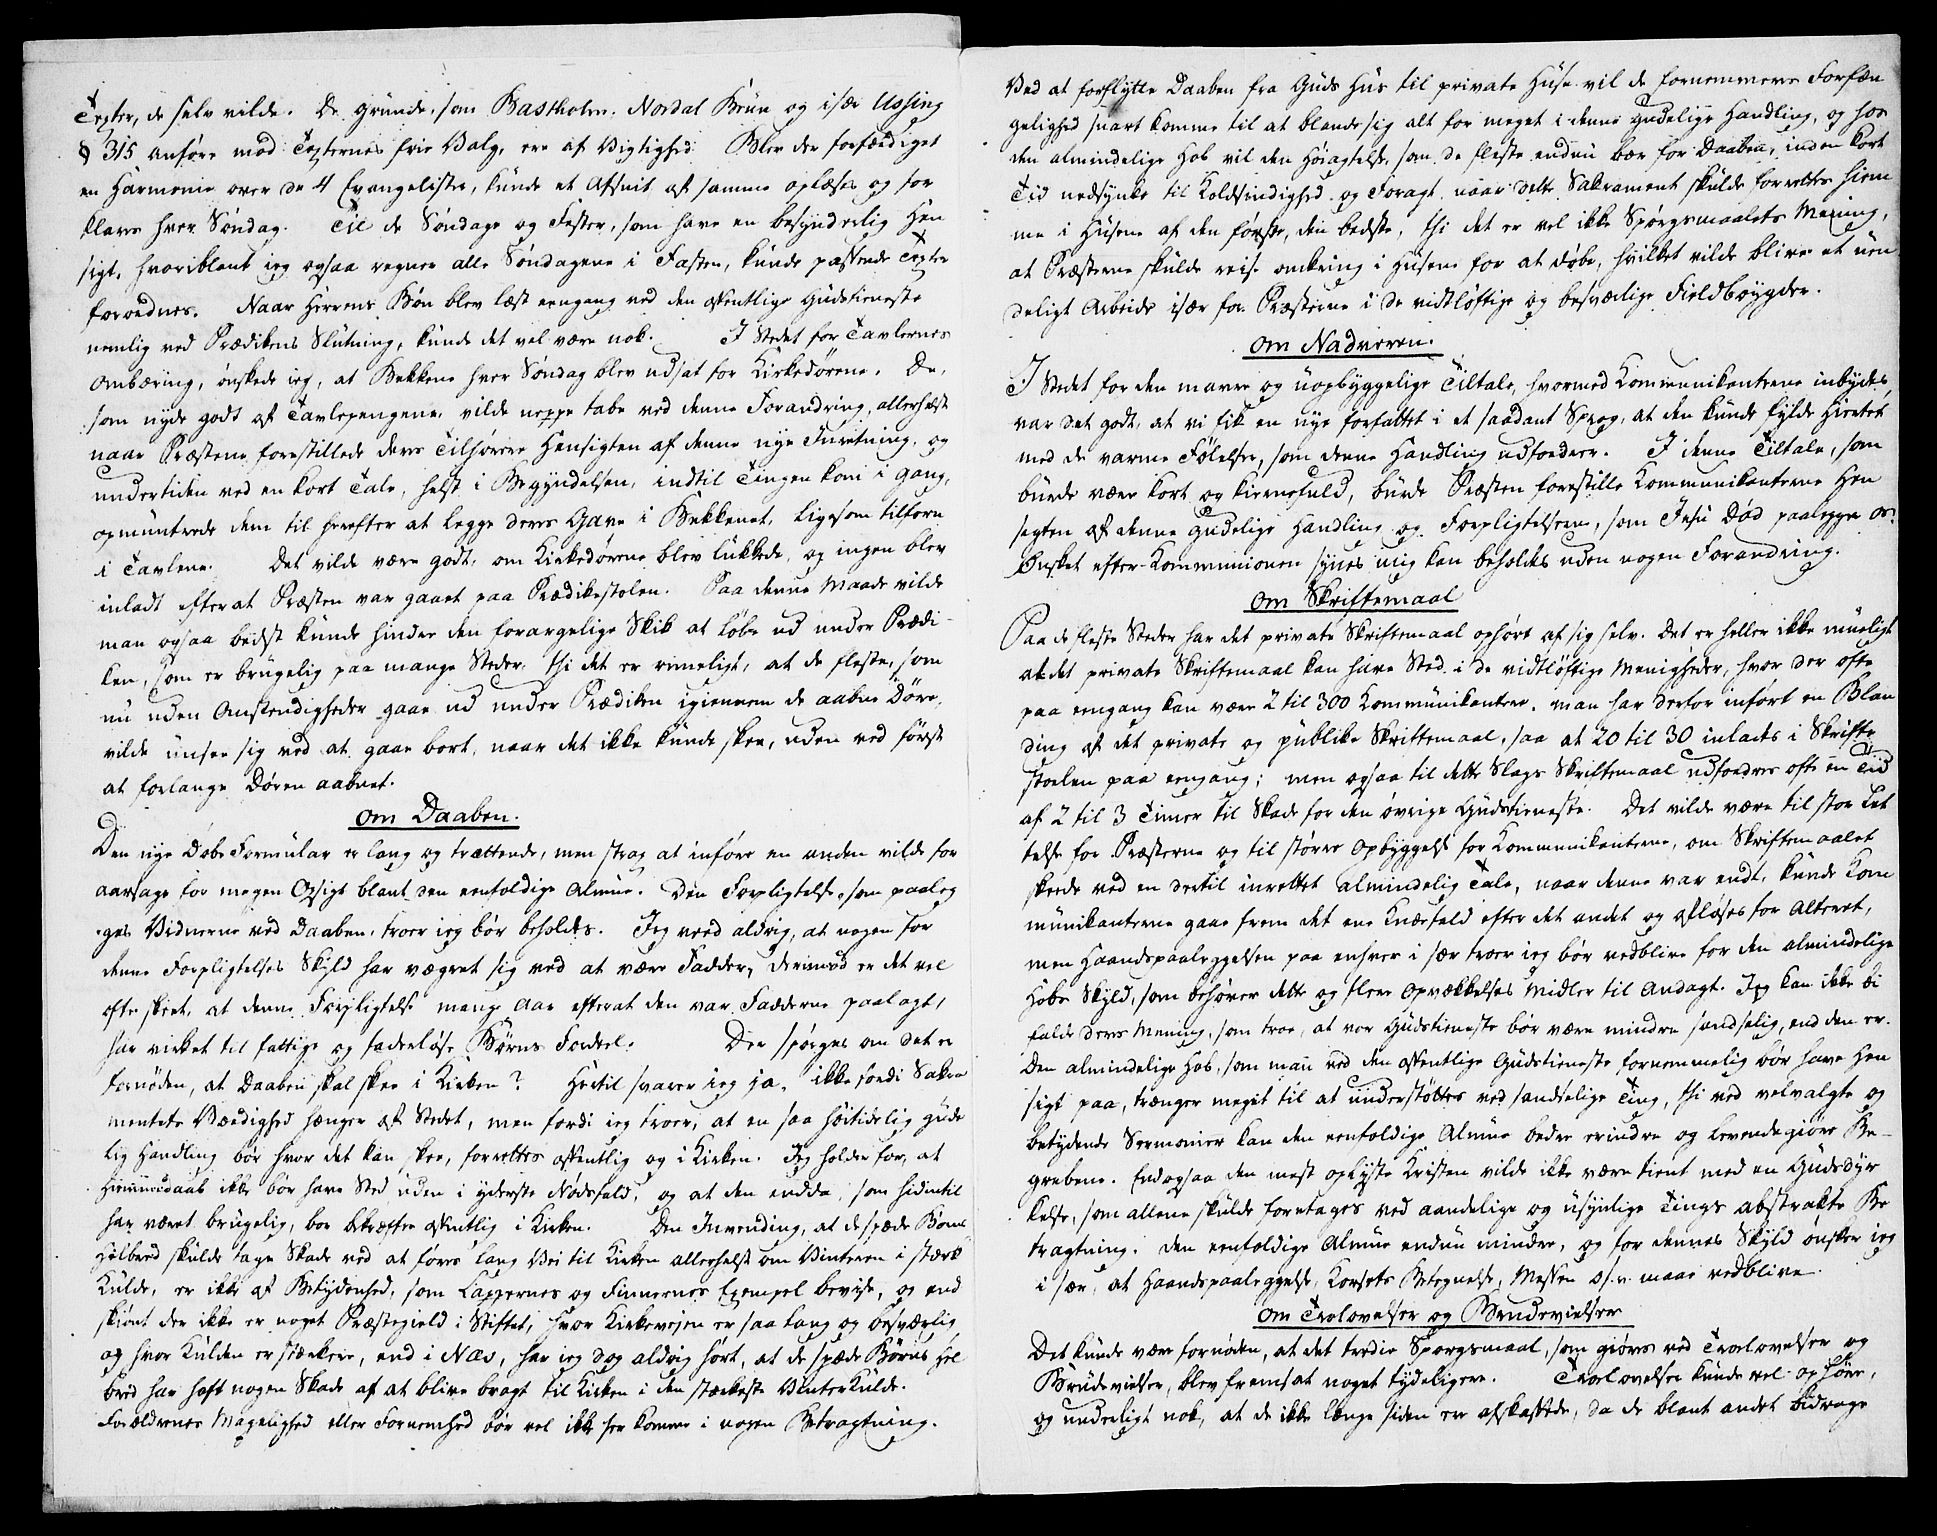 Texter, de selv vilde. De Grunde, som Bastholm, Nordal Brun og især Ussing
§ 315 anføre mod Texternes frie Valg, ere af Vigtighed. Blev der forfærdiget
en Harmonie over de 4 Evangelister, kunde et Afsnit af samme oplæses og for
klares hver Søndag. Til de Søndage og Fester, som have en besynderlig Hen
sigt, hvoriblant ieg ogsaa regner alle Søndagene i Fasten, kunde passende Texter
forordnes. Naar Herrens Bøn blev læst eengang ved den offentlige Gudstieneste
nemlig ved Prædikens Slutning, kunde det vel være nok. I Stedet for Tavlernes
Ombæring, ønskede ieg, at Bekkene hver Søndag blev udsat for Kirkedørene. De,
som nyde godt af Tavlepengene, vilde neppe tabe ved denne Forandring, allerhelst
naar Præstene forestillede deres Tilhørere Hensigten af denne nye Inretning, og
undertiden ved en kort Tale, helst i Begyndelsen, indtil Tingen kom i Gang,
opmuntrede dem til herefter at legge deres Gave i Bekkenet, ligesom tilforn
i Tavlene. Det vilde være godt, om Kirkedørene blev lukkede, og ingen blev
inladt efterat Præsten var gaaet paa Prædikestolen. Paa denne Maade vilde
man ogsaa bedst kunde hindre den forargelige Skik at løbe ud under Prædi-
ken, som er brugelig paa mange Steder, thi det er rimeligt, at de fleste, som
nu uden Omstendigheder gaae ud under Prædiken igiennem de aabne Døre,
vilde unsee sig ved at gaae bort, naar det ikke kunde skee, uden ved først
at forlange Døren aabnet.
Om Daaben.
Den nye Døbe Formular er lang og trættende, men strax at inføre en anden vilde for
aarsage for megen Opsigt blant den eenfoldige Almue. Den Forpligtelse, som paaleg
ges Vidnerne ved Daaben, troer ieg bør beholdes. Jeg veed aldrig, at nogen for
denne Forpligtelses Skyld har vægret sig ved at være Fadder, derimod er det vel
ofte skeet, at denne Forpligtelse mange Aar efterat den var Fadderne paalagt,
har virket til fattige og faderløse Børns Fordeel. Der spørges om det er
fornøden, at Daaben skal skee i Kirken? Hertil svarer ieg ja, ikke fordi Sakra
mentets Værdighed hænger af Stedet, men fordi ieg troer, at en saa høitidelig gude
lig Handling bør hvor det kan skee, forrettes offentlig og i Kirken. Jeg holder for, at
Hiemmedaab ikke bør have Sted uden i yderste Nødsfald, og at den endda, som hidintil
har været brugelig, bør bekræftes offentlig i Kirken. Den Invending, at de spæde Børns
Helbred skulde tage Skade ved at føres lang Vei til Kirken allerhelst om Vinteren i stærk
Kulde, er ikke af Betydenhed, som Lappernes og Finnernes Exempel beviise, og end
skiønt der ikke er noget Præstegield i Stiftet, hvor Kirkeveien er saa lang og besværlig
og hvor Kulden er stærkere, end i Næs, har ieg dog aldrig hørt, at de spæde Børns Hel
bred har haft nogen Skade af at blive bragt til Kirken i den stærkeste Vinter Kulde.
Forældrenes Magelighed eller Fornemhed bør vel ikke her komme i nogen Betragtning.
Ved at forflytte Daaben fra Guds Hus til private Huse vil de fornemmeres Forfæn
gelighed snart komme til at blande sig alt for meget i denne gudelige Handling, og hos
den almindelige Hob vil den Høiagtelse, som de fleste endnu bær for Daaben, inden kort
Tid nedsynke til Koldsindighed og Foragt, naar dette Sakrament skulde forrettes hiem
me i Husene af den første, den bedste, thi det er vel ikke Spørgsmaalets Mening,
at Præsterne skulde reise omkring i Husene for at døbe, hvilket vilde blive et uen
deligt Arbeide især for Præsterne i de vidtløftige og besværlige Fieldbøygder.
Om Nadveren.
I Stedet for den mavre og uopbyggelige Tiltale, hvormed Kommunikanterne inbydes,
var det godt, at vi fik en nye forfattet i et saadant Sprog, at den kunde fylde Hiertet
med de varme Følelser, som denne Handling udfordrer. I denne Tiltale, som
burde være kort og kiernefuld, burde Præsten forestille Kommunikanterne Hen
sigten af denne gudelige Handling og Forpligtelserne, som Jesu Død paalegger os.
Ønsket efter Kommunionen synes mig kan beholdes uden nogen Forandring.
Om Skriftemaal
Paa de fleste Steder har det private Skriftemaal ophørt af sig selv. Det er heller ikke mueligt
at det private Skriftemaal kan have Sted i de vidtløftige Menigheder, hvor der ofte
paa eengang kan være 2 til 300 Kommunikantere. Man har derfor inført en Blan
ding af det private og publike Skriftemaal, saa at 20 til 30 inlades i Skrifte
stoelen paa eengang; men ogsaa til dette Slags Skriftemaal udfordres ofte en Tid
af 2 til 3 Timer til Skade for den øvrige Gudstieneste. Det vilde være til stor Let
telse for Præsterne og til større Opbyggelse for Kommunikanterne, om Skriftemaalet
skeede ved en dertil inrettet almindelig Tale, naar denne var endt, kunde Kom
munikanterne gaae frem det ene Knæfald efter det andet og afløses for Alteret,
men Haandspaaleggelsen paa enhver i sær troer ieg bør vedblive for den almindelige
Hobs Skyld, som behøver dette og flere Opvækkelses Midler til Andagt. Jeg kan ikke bi
falde deres Mening, som troe, at vor Gudstieneste bør være mindre sandselig, end den er.
Den almindelige Hob, som man ved den offentlige Gudstieneste fornemmelig bør have Hen
sigt paa, trænger meget til at understøttes ved sandselige Ting, thi ved velvalgte og
betydende Sermonier kan den eenfoldige Almue bedre erindre og levendegiøre Be-
grebene. Endogsaa den mest oplyste Kristen vilde ikke være tient med en Gudsdyr
kelse, som allene skulde foretages ved aandelige og usynlige Tings abstrakte Be
tragtning. Den eenfoldige Almue endnu mindre, og for dennes Skyld ønsker ieg
i sær, at Haandspaaleggelse, Korsets Betegnelse, Messen o. s. v. maae vedblive.
Om Trolovelser og Brudevielser
Det kunde være fornøden, at det tredie Spørgsmaal, som giøres ved Trolovelser og
Brudevielser, blev fremsat noget tydeligere. Trolovelser kunde vel ophøre,
og underligt nok, at de ikke længe siden ere afskaffede, da de blant andet bidrage